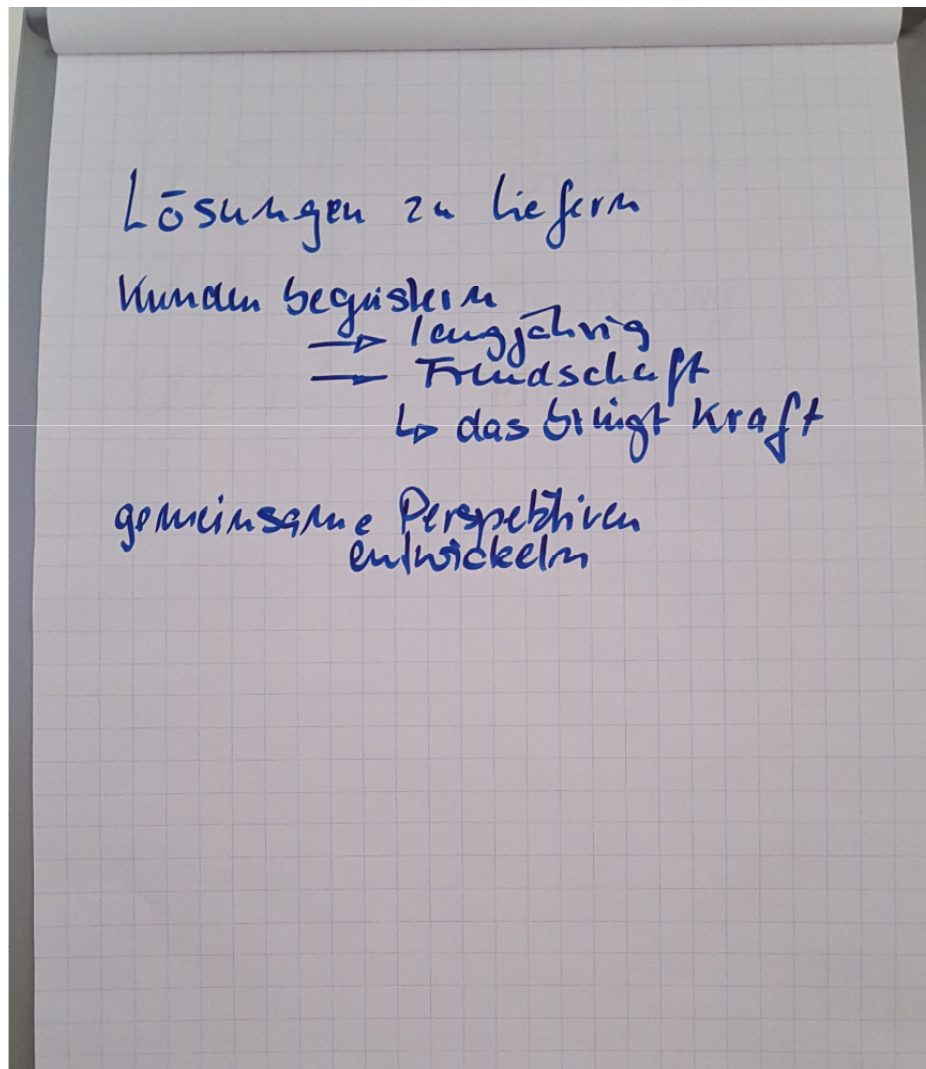 Lösungen zu liefern
Kunden begeistern
→ langjährig
→ Freundschaft
↳ das bringt Kraft
gemeinsame Perspektiven
entwickeln